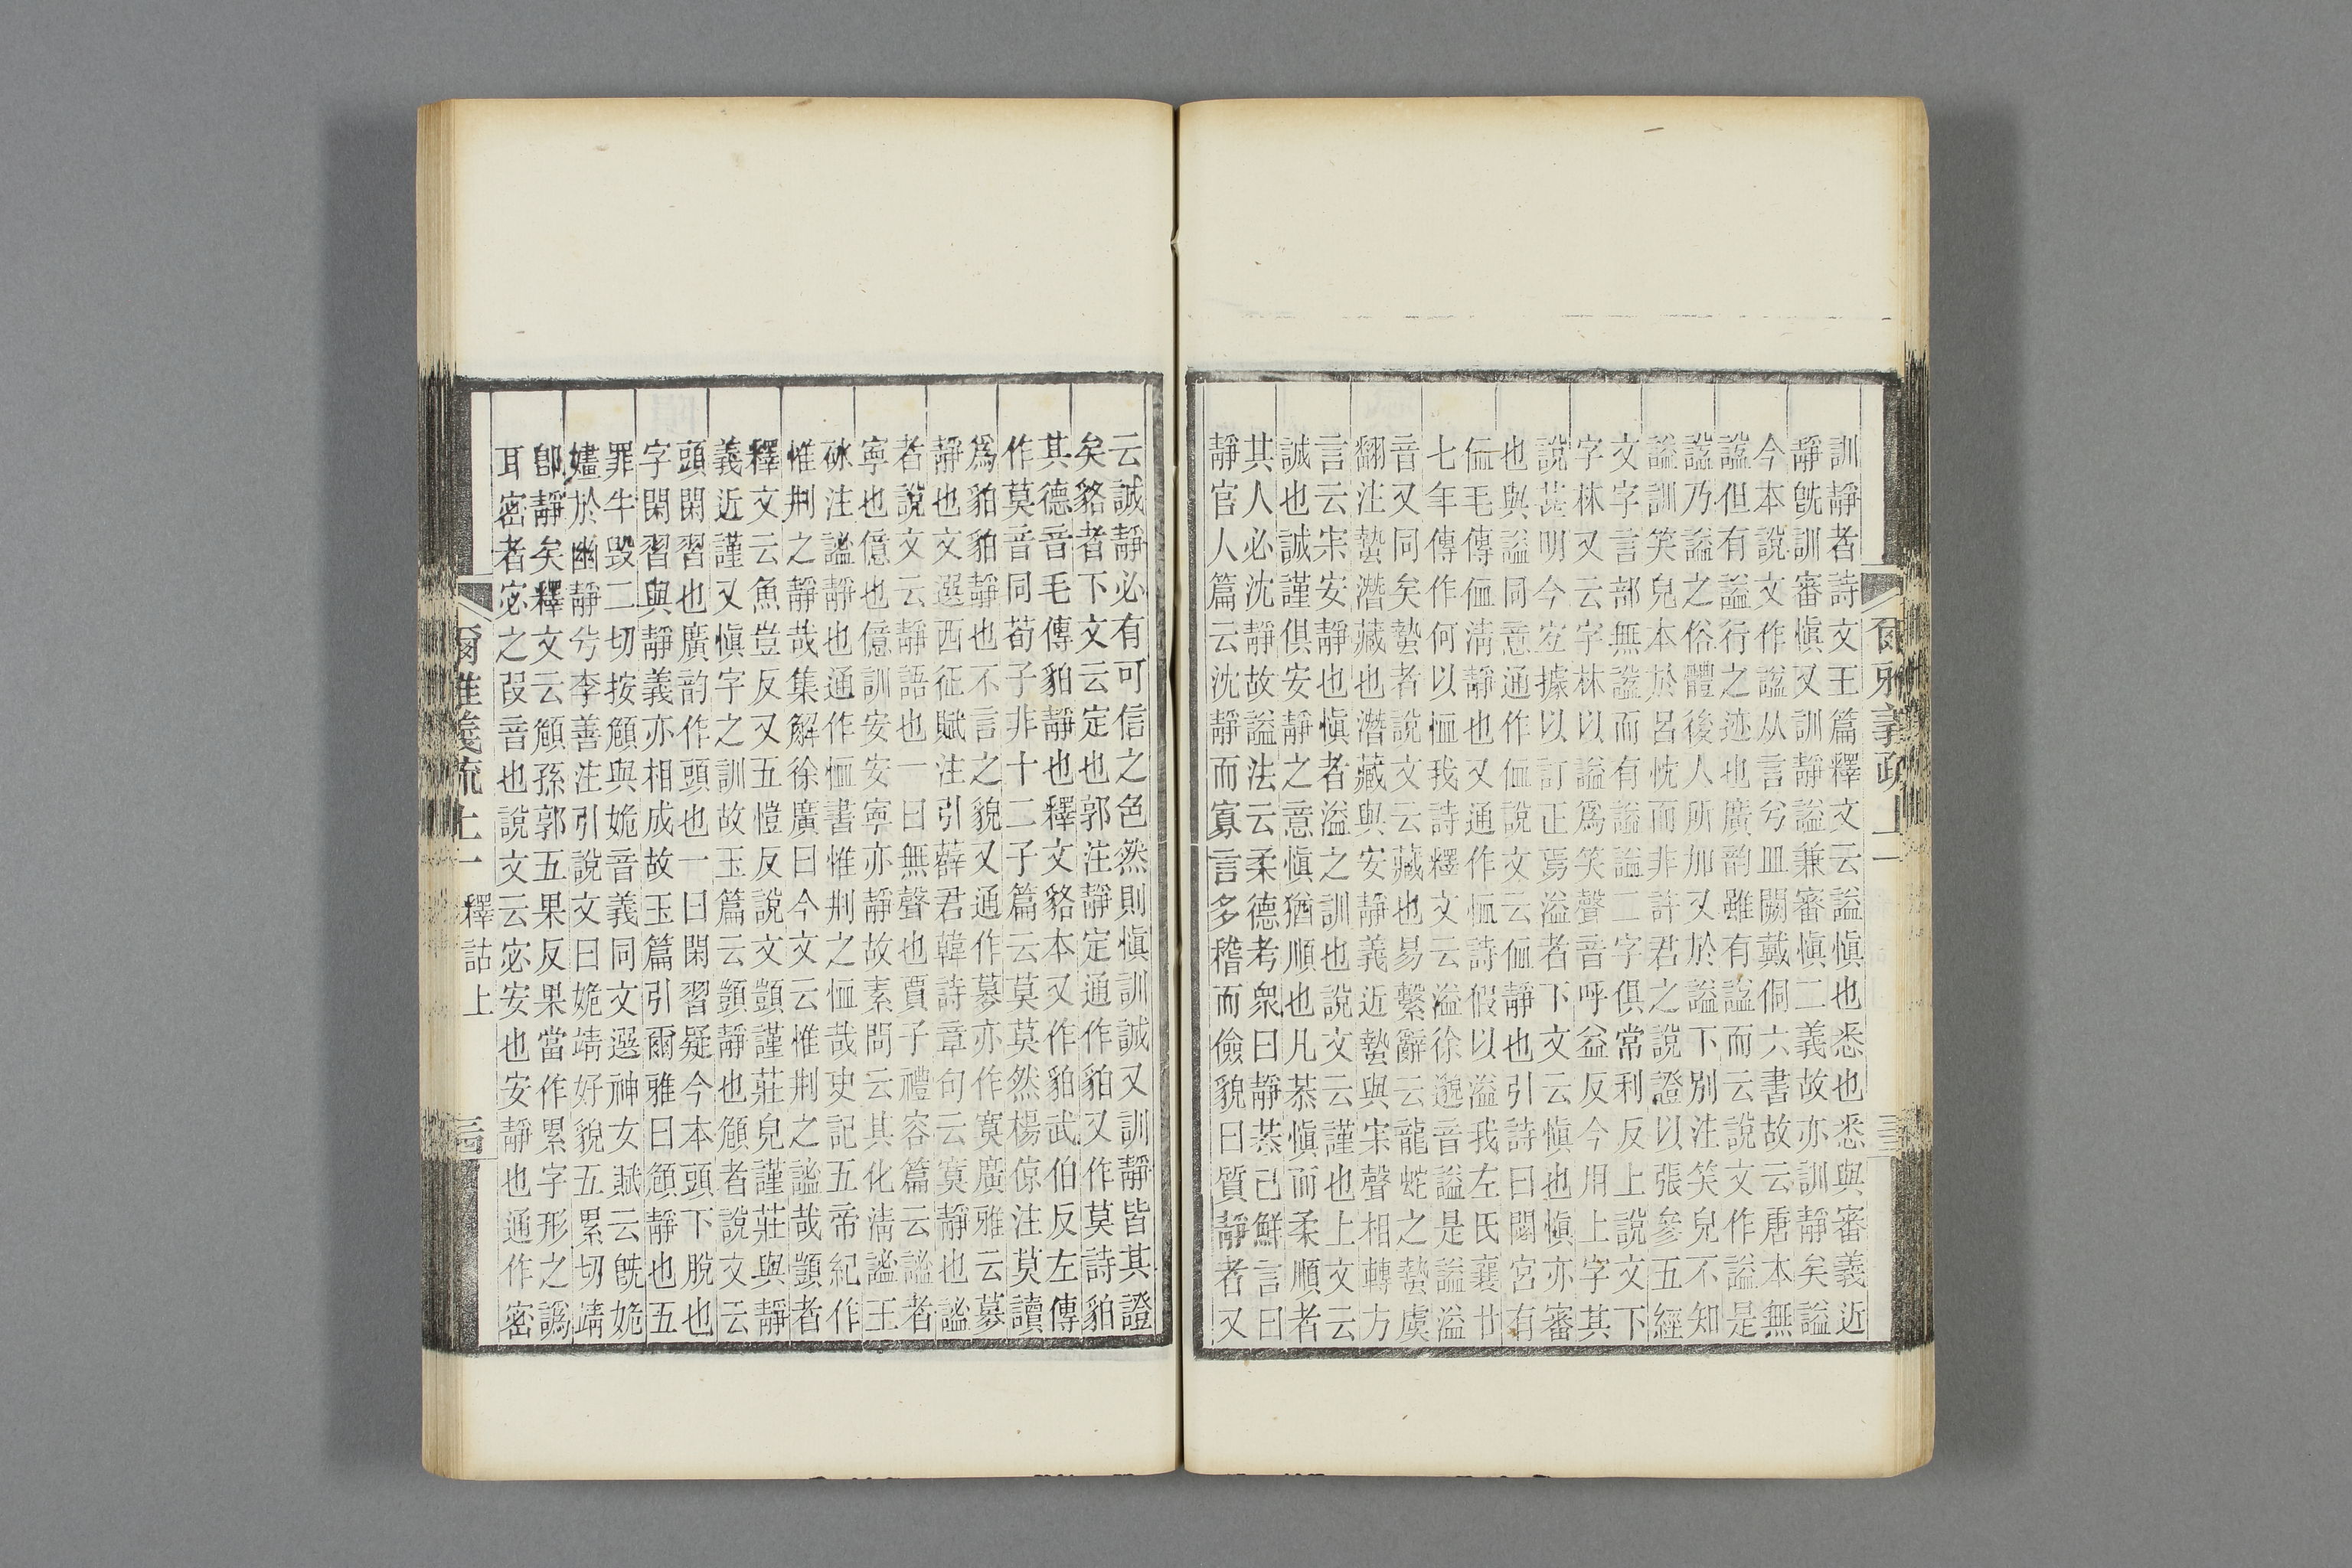 訓靜者詩文王篇釋文云謐愼也悉也悉與審義近
靜旣訓審愼又訓靜謐兼審愼二義故亦訓靜矣謐
今本說文作謚从言兮皿闕戴侗六書故云唐本無
謚但有謚行之迹也廣韵雖有謚而云說文作謚是
謚乃謚之俗體後人所加又於謚下別注笑皃不知
謚訓笑皃本於呂忱而非許君之說證以張參五經
文字言部無謚而有謚謚二字俱常利反上說文下
字林又云字林以謚爲笑聲音呼益反今用上字其
說甚明今㝎據以訂正焉溢者下文云愼也愼亦審
也與謐同意通作侐說文云侐靜也引詩曰閟宮有
侐毛傳侐淸靜也又通作恤詩假以溢我左氏襄廿
七年傳作何以恤我詩釋文云溢徐邈音謐是謐溢
音又同矣蟄者說文云藏也易繫辭云龍蛇之蟄虞
翻注蟄潛藏也潛藏與安靜義近蟄與宋聲相轉方
言云宋安靜也愼者溢之訓也說文云謹也上文云
誠也誠謹俱安靜之意愼猶順也凡恭愼而柔順者
其人必沈靜故謚法云柔德考衆曰靜恭己鮮言曰
靜官人篇云沈靜而寡言多稽而儉貌曰質靜者又
爾雅義疏上一
三三
云誠靜必有可信之色然則愼訓誠又訓靜皆其證
矣貉者下文云定也郭注靜定通作貊又作莫詩貊
其德音毛傳貊靜也釋文貉本又作貊武伯反左傳
作莫音同荀子非十二子篇云莫莫然楊倞注莫讀
爲貊貊靜也不言之貌又通作慕亦作寞廣雅云慕
靜也文選西征賦注引薛君韓詩章句云寞靜也謐
者說文云靜語也一曰無聲也賈子禮容篇云謐者
寧也億也億訓安安寧亦靜故素問云其化淸謐王
砅注謐靜也通作恤書惟刑之恤哉史記五帝紀作
惟刑之靜哉集解徐廣曰今文云惟刑之謐哉顗者
釋文云魚豈反又五愷反說文顗謹莊皃謹莊與靜
義近謹又愼字之訓故玉篇云顗靜也頠者說文云
頭閑習也廣韵作頭也一曰閑習疑今本頭下脫也
字閑習與靜義亦相成故玉篇引爾雅曰頠靜也五
罪牛毀二切按頠與姽音義同文選神女賦云旣姽
嫿於幽靜兮李善注引說文曰姽靖好貌五累切靖
卽靜矣釋文云頠孫郭五果反果當作累字形之譌
耳密者宓之叚音也說文云宓安也安靜也通作密
爾雅義疏上一
釋詁上
三四